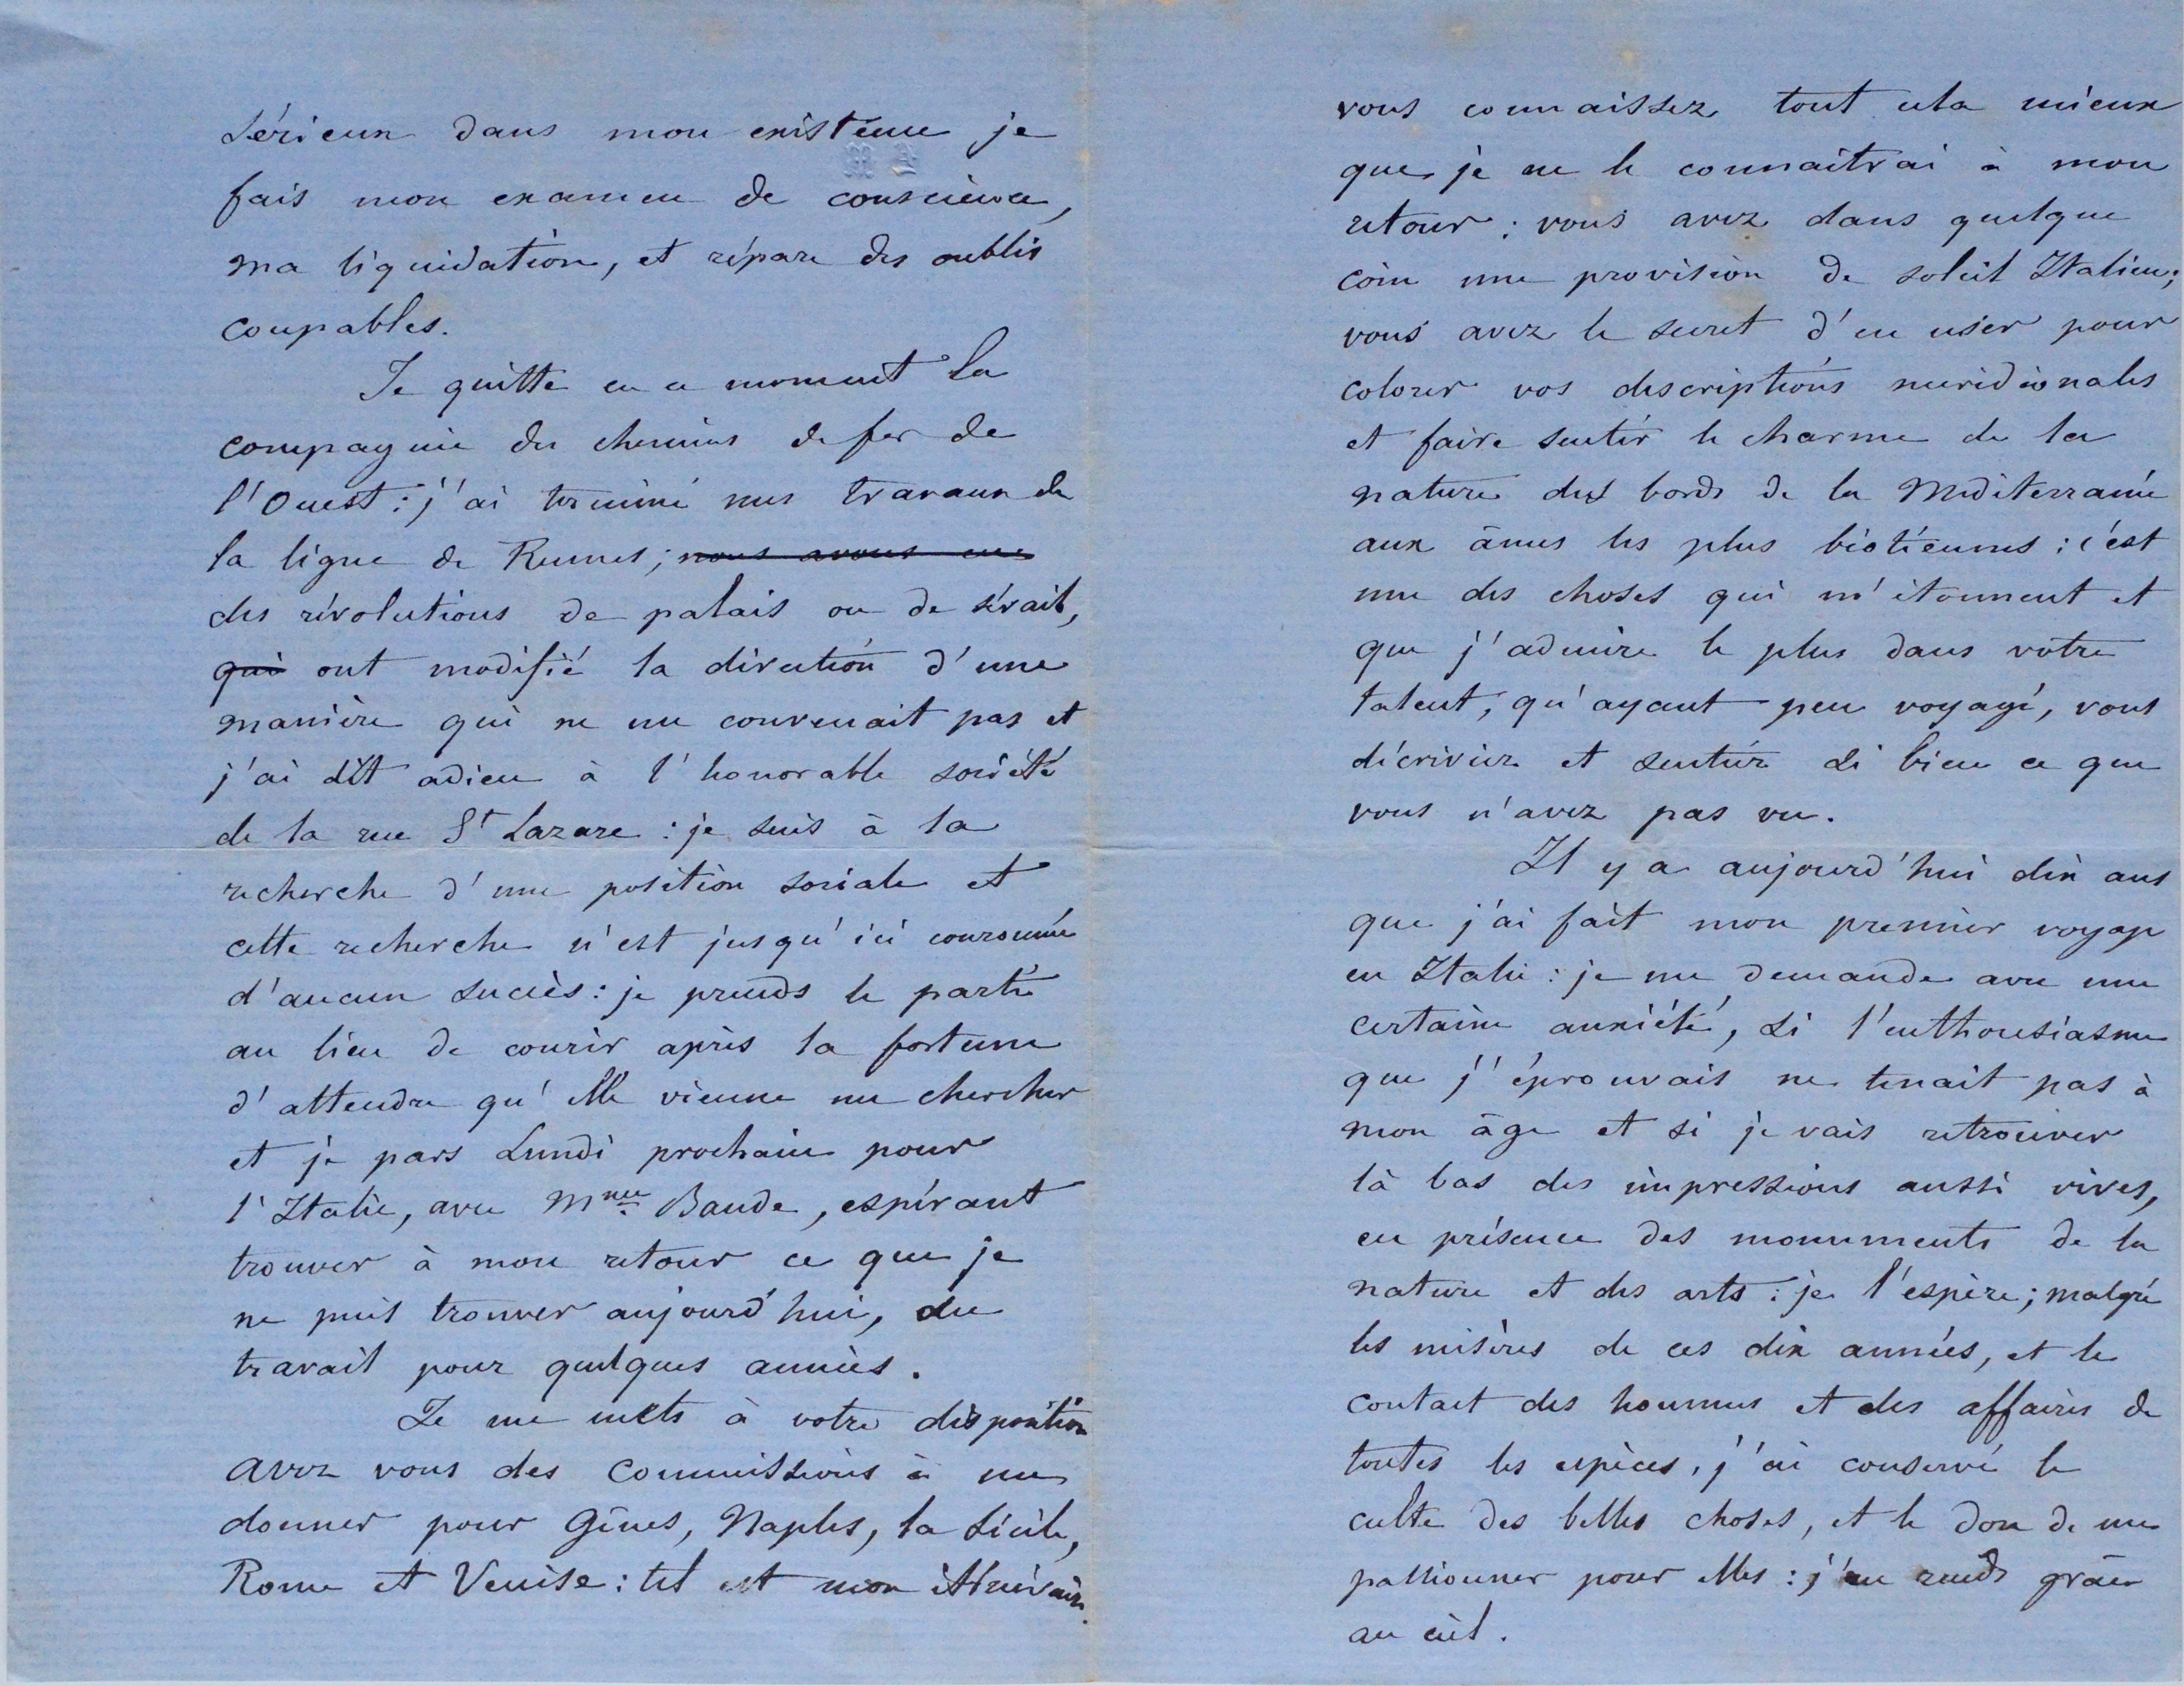 sérieux dans mon existence je
fais mon examen de conscience,
ma liquidation, et répare des oublis
coupables.
Je quitte en ce moment la
compagnie des chemins de fer de
l'Ouest : j'ai terminé mes travaux de
la ligne de Rennes ; nous avons eu
des révolutions de palais ou de sérail,
qui ont modifié la direction d'une
manière qui ne me convenait pas et
j'ai dit adieu à l'honorable société
de la rue St Lazare : je suis à la
recherche d'une position sociale et
cette recherche n'est jusqu'ici couronnée
d'aucun succès : je prends le parti
au lieu de courir après la fortune
d'attendre qu'elle vienne me chercher
et je pars Lundi prochain pour
l'Italie, avec Mme Baude, espérant
trouver à mon retour ce que je
ne puis trouver aujourd'hui, du
travail pour quelques années.
Je me mets à votre disposition
avez vous des commissions à me
donner pour Gênes, Naples, la Sicile,
Rome et Venise : tel est mon itinéraire.
vous connaissez tout cela mieux
que je ne le connaitrai à mon
retour ; vous avez dans quelque
coin une provision de soleil Italien ;
vous avez le secret d'en user pour
colorer vos descriptions méridionales
et faire sentir le charme de la
nature des bords de la Mediterranée
aux âmes les plus béotiennes : c'est
une des choses qui m'étonnent et
que j'admire le plus dans votre
talent, qu'ayant peu voyagé, vous
décriviez et sentiez si bien ce que
vous n'avez pas vu.
Il y a aujourd'hui dix ans
que j'ai fait mon premier voyage
en Italie : je me demande avec une
certaine anxiété, si l'enthousiasme
que j'éprouvais ne tenait pas à
mon âge et si je vais retrouver
là bas des impressions aussi vives,
en présence des monuments de la
nature et des arts : je l'espère ; malgré
les misères de ces dix années, et le
contact des hommes et des affaires de
toutes les espèces, j'ai conservé le
culte des belles choses, et le don de me
passionner pour elles : j'en rends grâce
au ciel.